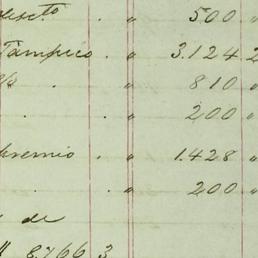 " 500 "
Tampico . " 3.124 2
. " 810 "
. " 200 "
premio . " 1.428 "
. . " 200 "
de
8.766 3